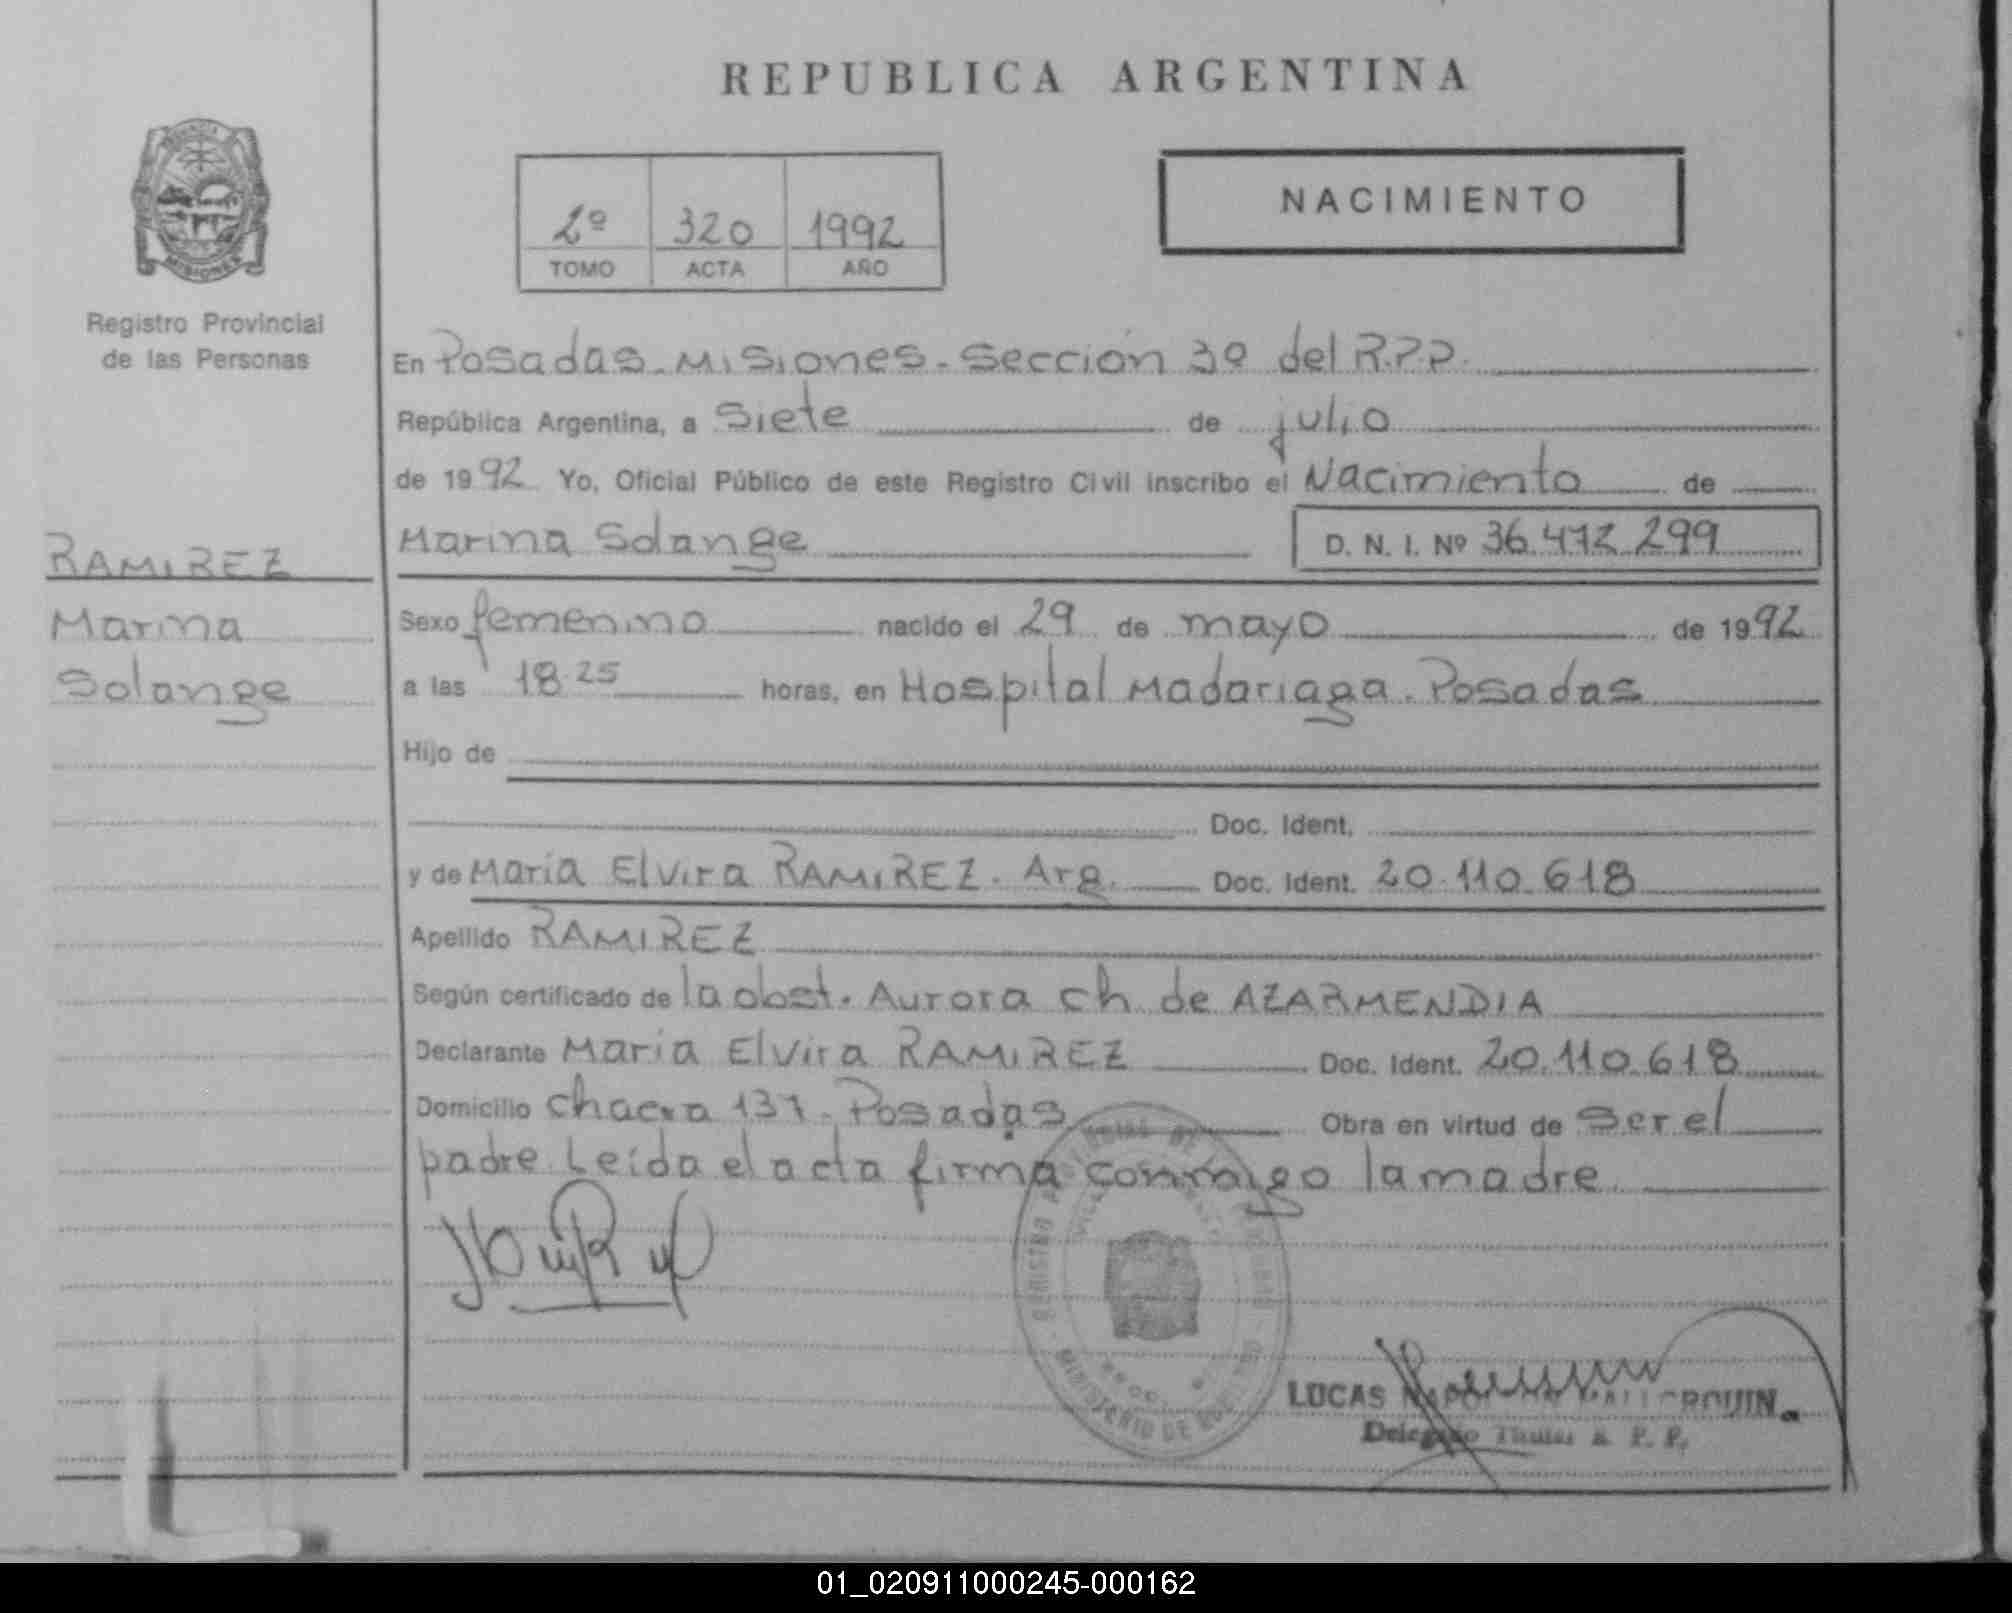 REPUBLICA ARGENTINA
MISIONES
Registro Provincial
de las Personas
2º 320 1992
TOMO ACTA AÑO
NACIMIENTO
En Posadas. Misiones. Sección 3º del R.P.P.
República Argentina, a Siete de julio
de 1992 Yo, Oficial Público de este Registro Civil inscribo el Nacimiento de
Marina Solange D. N. I. Nº 36.472.299
RAMIREZ
Marina
Solange
Sexo femenino nacido el 29 de mayo de 1992
a las 18.25 horas, en Hospital Madariaga. Posadas
Hijo de
Doc. Ident.
y de María Elvira RAMIREZ. Arg. Doc. Ident. 20.110.618
Apellido RAMIREZ
Según certificado de la obst. Aurora Ch. de AZARMENDIA
Declarante María Elvira RAMIREZ Doc. Ident. 20.110.618
Domicilio Chacra 137. Posadas Obra en virtud de Ser el
padre. Leída el acta firma conmigo la madre
MINISTERIO DE
LUCAS
Delegado
01_020911000245-000162